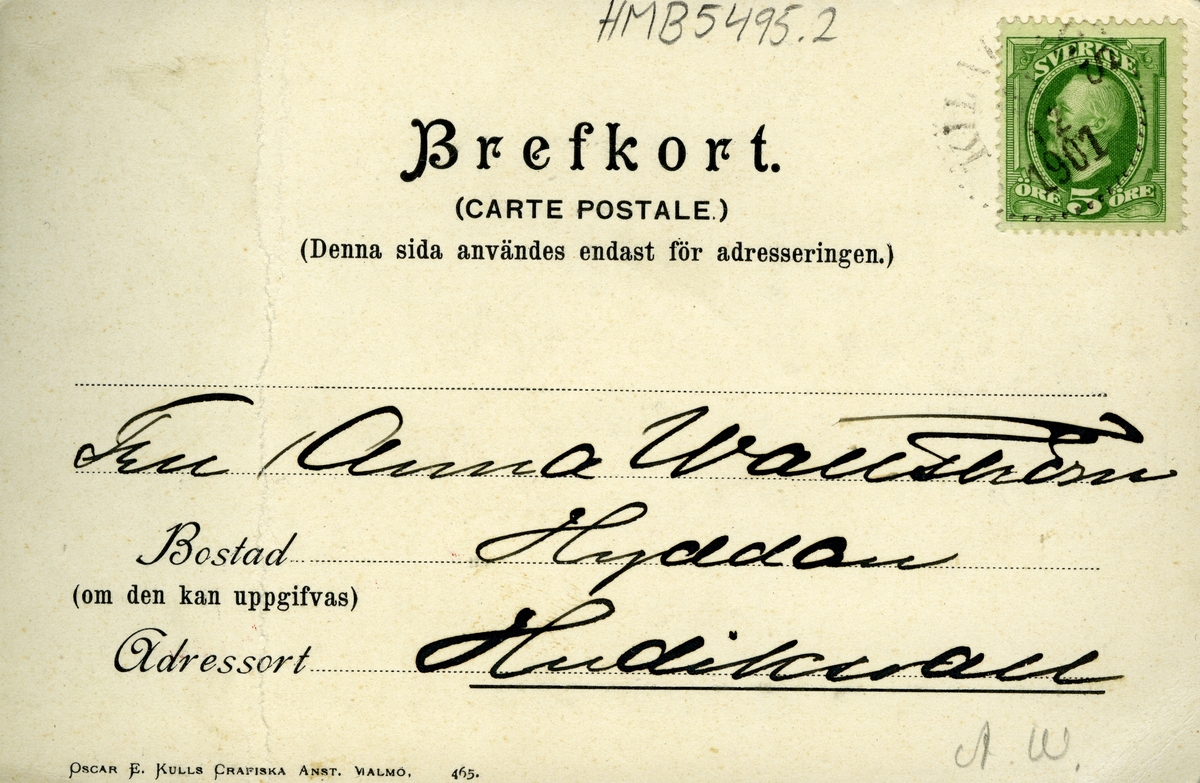 HMB5495.2
SVERIGE
12
1901
ÖRE 5 ÖRE
Brefkort.
(CARTE POSTALE.)
(Denna sida användes endast för adresseringen.)
Fru Anna Wallström
Bostad Hyddan
(om den kan uppgifvas)
Adressort Hudikswall
A. W.
OSCAR E. KULLS GRAFISKA ANST. MALMÖ, 465.